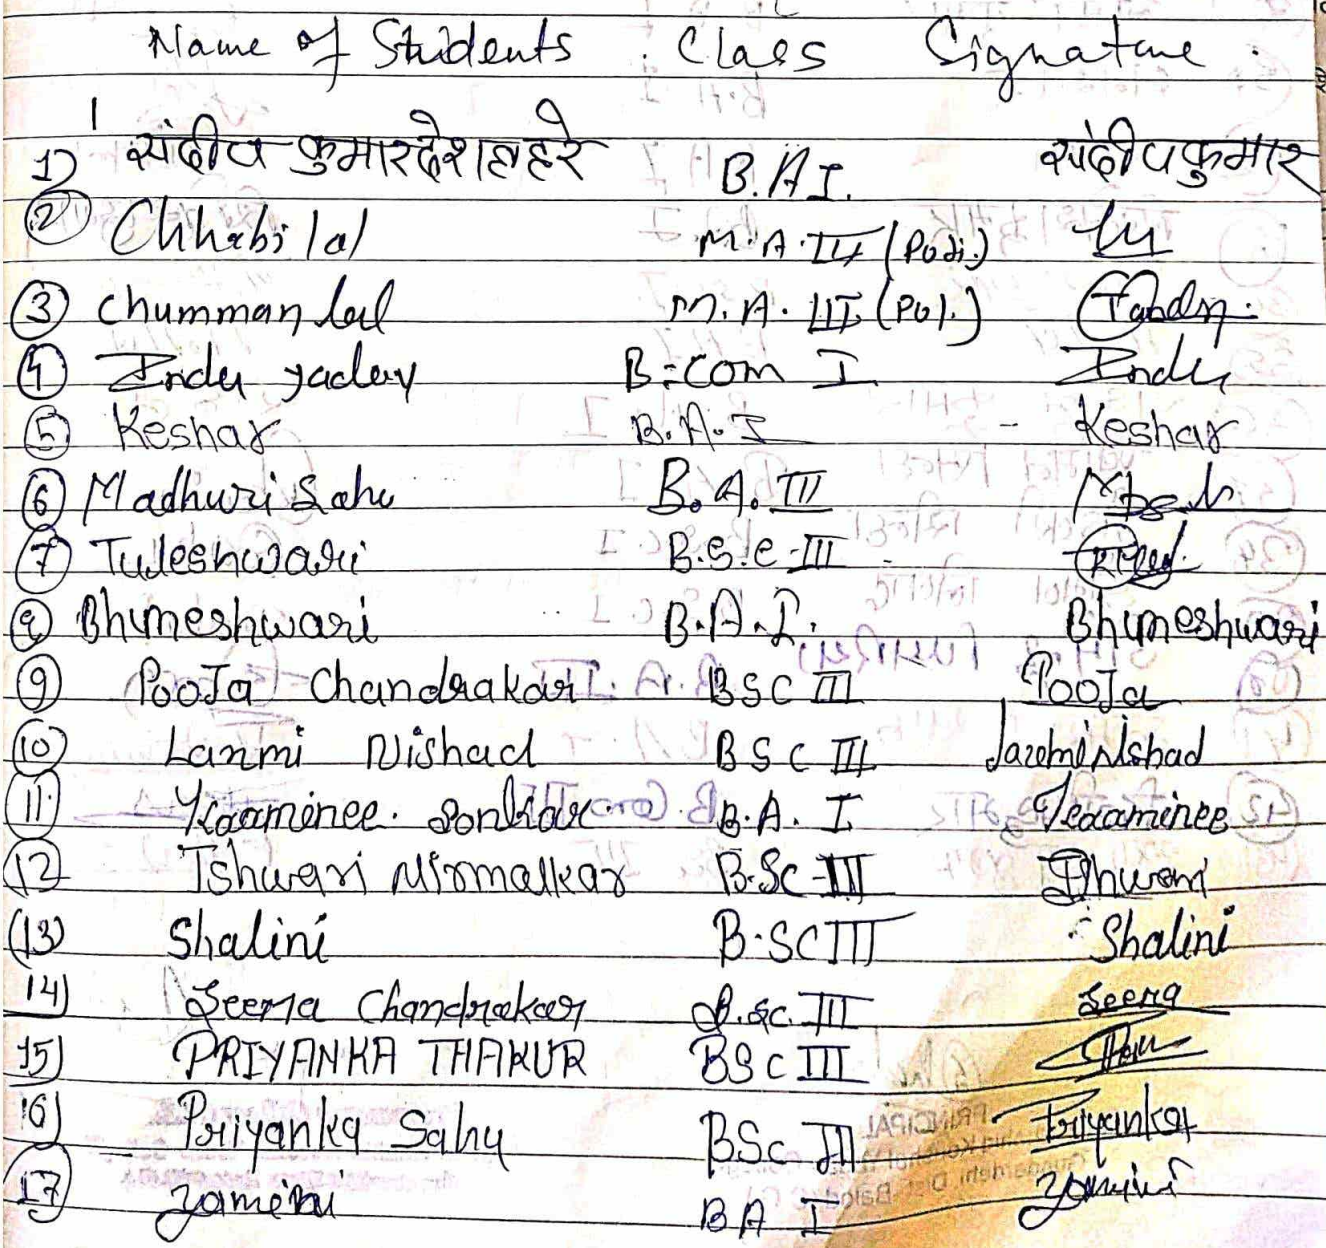 Name of Students . Class Signature .
1) संदीप कुमार देशलहरे B.A I. संदीप कुमार
2 Chhabi lal M.A. III (Poli.)
3 Chumman lal M.A. III (Pol.) Tandon.
4 Indu yadav B.com I Indu
5 Keshar B.A. I - Keshar
6 Madhuri Sahu B.A. III
7 Tuleshwari B.S.c-III
8 Bhumeshwari B.A.I. Bhumeshwari
9 PooJa Chandrakar BSC III PooJa
10 Laxmi Nishad BSC III Laxmi Nishad
11 Yaaminee. Sonkar B.A. I Yaaminee
12 Ishwari Nirmalkar B.Sc-III Ishwari
(13) Shalini B.SC III Shalini
14) Seema Chandrakar B.Sc. III Seema
15) PRIYANKA THAKUR BSc III
16) Priyanka Sahu BSc III Priyanka
17) Yamini BA I Yamini